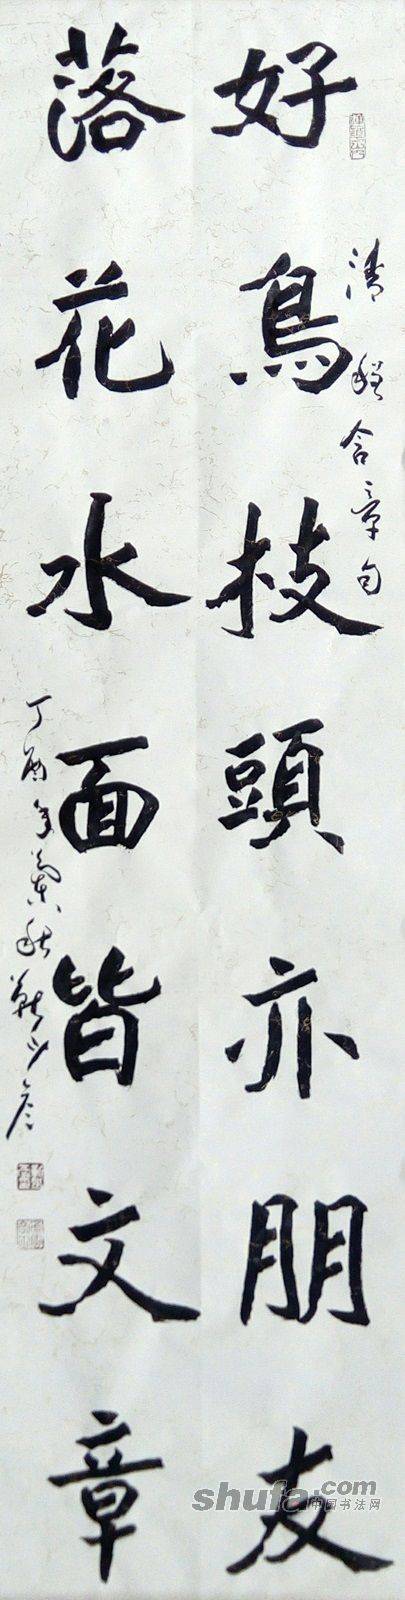 好鳥枝頭亦朋友
清程含章句
落花水面皆文章
丁酉年
shufa.com
中国书法网